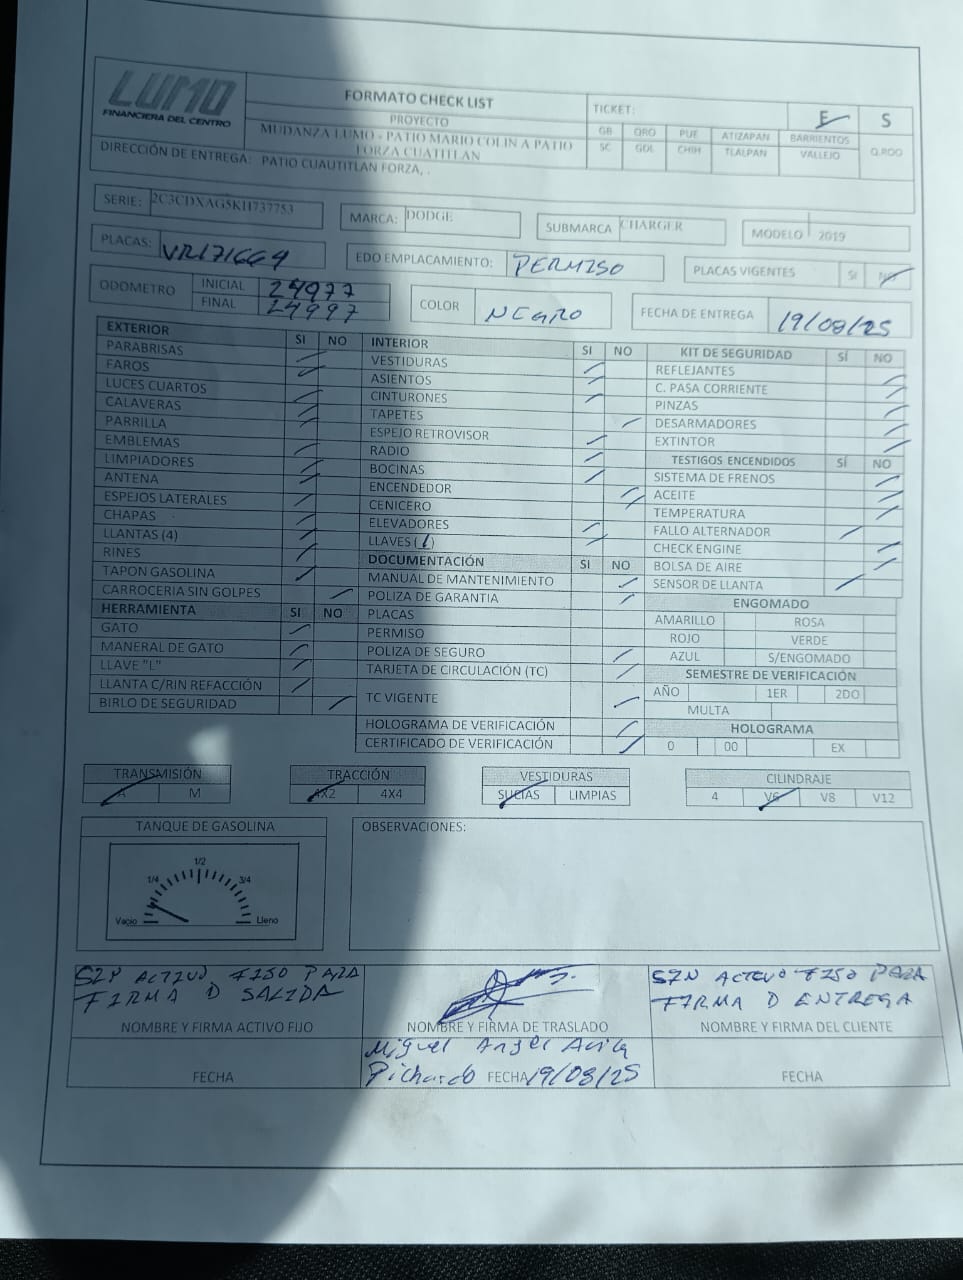 LUMO
FINANCIERA DEL CENTRO
FORMATO CHECK LIST
PROYECTO
MUDANZA LUMO - PATIO MARIO COLIN A PATIO
FORZA CUATITLAN
TICKET: E S
GB QRO PUE ATIZAPAN BARRIENTOS
SC GDL CHIH TLALPAN VALLEJO Q.ROO
DIRECCIÓN DE ENTREGA: PATIO CUAUTITLAN FORZA, .
SERIE: 2C3CDXAG5KH737753 MARCA: DODGE SUBMARCA CHARGER MODELO 2019
PLACAS: VR171664 EDO EMPLACAMIENTO: PERMISO PLACAS VIGENTES SI NO
ODOMETRO INICIAL 24977
FINAL 24997
COLOR NEGRO FECHA DE ENTREGA 19/08/25
EXTERIOR SI NO
PARABRISAS
FAROS
LUCES CUARTOS
CALAVERAS
PARRILLA
EMBLEMAS
LIMPIADORES
ANTENA
ESPEJOS LATERALES
CHAPAS
LLANTAS (4)
RINES
TAPON GASOLINA
CARROCERIA SIN GOLPES
HERRAMIENTA SI NO
GATO
MANERAL DE GATO
LLAVE "L"
LLANTA C/RIN REFACCIÓN
BIRLO DE SEGURIDAD
INTERIOR SI NO
VESTIDURAS
ASIENTOS
CINTURONES
TAPETES
ESPEJO RETROVISOR
RADIO
BOCINAS
ENCENDEDOR
CENICERO
ELEVADORES
LLAVES (1)
DOCUMENTACIÓN SI NO
MANUAL DE MANTENIMIENTO
POLIZA DE GARANTIA
PLACAS
PERMISO
POLIZA DE SEGURO
TARJETA DE CIRCULACIÓN (TC)
TC VIGENTE
HOLOGRAMA DE VERIFICACIÓN
CERTIFICADO DE VERIFICACIÓN
KIT DE SEGURIDAD SÍ NO
REFLEJANTES
C. PASA CORRIENTE
PINZAS
DESARMADORES
EXTINTOR
TESTIGOS ENCENDIDOS SÍ NO
SISTEMA DE FRENOS
ACEITE
TEMPERATURA
FALLO ALTERNADOR
CHECK ENGINE
BOLSA DE AIRE
SENSOR DE LLANTA
ENGOMADO
AMARILLO ROSA
ROJO VERDE
AZUL S/ENGOMADO
SEMESTRE DE VERIFICACIÓN
AÑO 1ER 2DO
MULTA
HOLOGRAMA
0 00 EX
TRANSMISIÓN
A M
TRACCIÓN
4X2 4X4
VESTIDURAS
SUCIAS LIMPIAS
CILINDRAJE
4 V6 V8 V12
TANQUE DE GASOLINA
1/2
1/4 3/4
Vacio Lleno
OBSERVACIONES:
SIN ACTIVO FISO PARA
FIRMA D SALIDA
NOMBRE Y FIRMA ACTIVO FIJO
FECHA
NOMBRE Y FIRMA DE TRASLADO
Miguel Angel Avila
Pichardo FECHA 19/08/25
SIN ACTIVO FISO PARA
FIRMA D ENTREGA
NOMBRE Y FIRMA DEL CLIENTE
FECHA